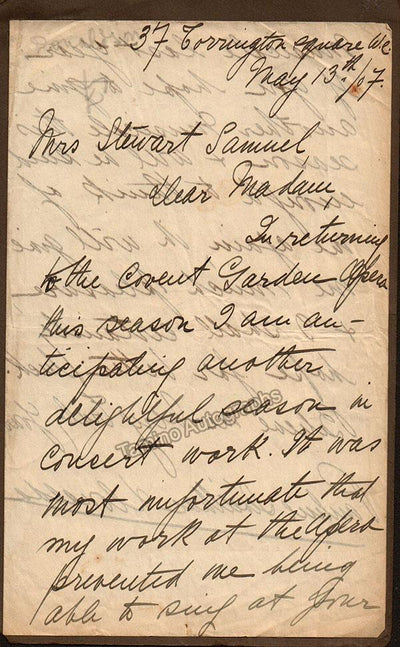 37 Torrington Square Wc
May 13th/07.
Mrs Stewart Samuel
Dear Madam,
In returning
to the Covent Garden Opera
this season I am an-
ticipating another
delightful season in
concert work. It was
most unfortunate that
my work at the Opera
prevented me being
able to sing at your
Tamino Autographs